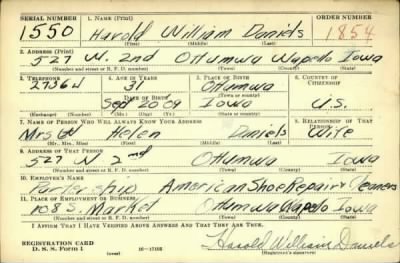 SERIAL NUMBER 1. NAME (Print) ORDER NUMBER
1550 Harold William Daniels 1854
(First) (Middle) (Last)
2. ADDRESS (Print)
527 N. 2nd Ottumwa Wapelo Iowa
(Number and street or R. F. D. number) (Town) (County) (State)
3. TELEPHONE 4. AGE IN YEARS 5. PLACE OF BIRTH 6. COUNTRY OF CITIZENSHIP
2736W 31 Ottumwa
DATE OF BIRTH (Town or county)
Sep 20 09 Iowa U.S.
(Exchange) (Number) (Mo.) (Day) (Yr.) (State or country)
7. NAME OF PERSON WHO WILL ALWAYS KNOW YOUR ADDRESS 8. RELATIONSHIP OF THAT PERSON
Mrs Helen Daniels Wife
(Mr., Mrs., Miss) (First) (Middle) (Last)
9. ADDRESS OF THAT PERSON
527 N 2nd Ottumwa Iowa
(Number and street or R. F. D. number) (Town) (County) (State)
10. EMPLOYER'S NAME
American Shoe Repair & Cleaners
11. PLACE OF EMPLOYMENT OR BUSINESS
108 S. Market Ottumwa Wapelo Iowa
(Number and street or R. F. D. number) (Town) (County) (State)
I AFFIRM THAT I HAVE VERIFIED ABOVE ANSWERS AND THAT THEY ARE TRUE.
REGISTRATION CARD
D. S. S. Form 1 (over) 16-17105 Harold William Daniels
(Registrant's signature)